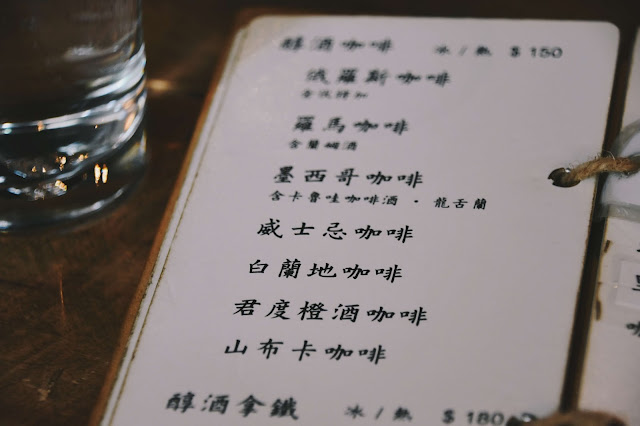 醇酒咖啡 冰/熱 $150
俄羅斯咖啡
含伏特加
羅馬咖啡
含蘭姆酒
墨西哥咖啡
含卡魯哇咖啡酒·龍舌蘭
威士忌咖啡
白蘭地咖啡
君度橙酒咖啡
山布卡咖啡
醇酒拿鐵 冰/熱 $180